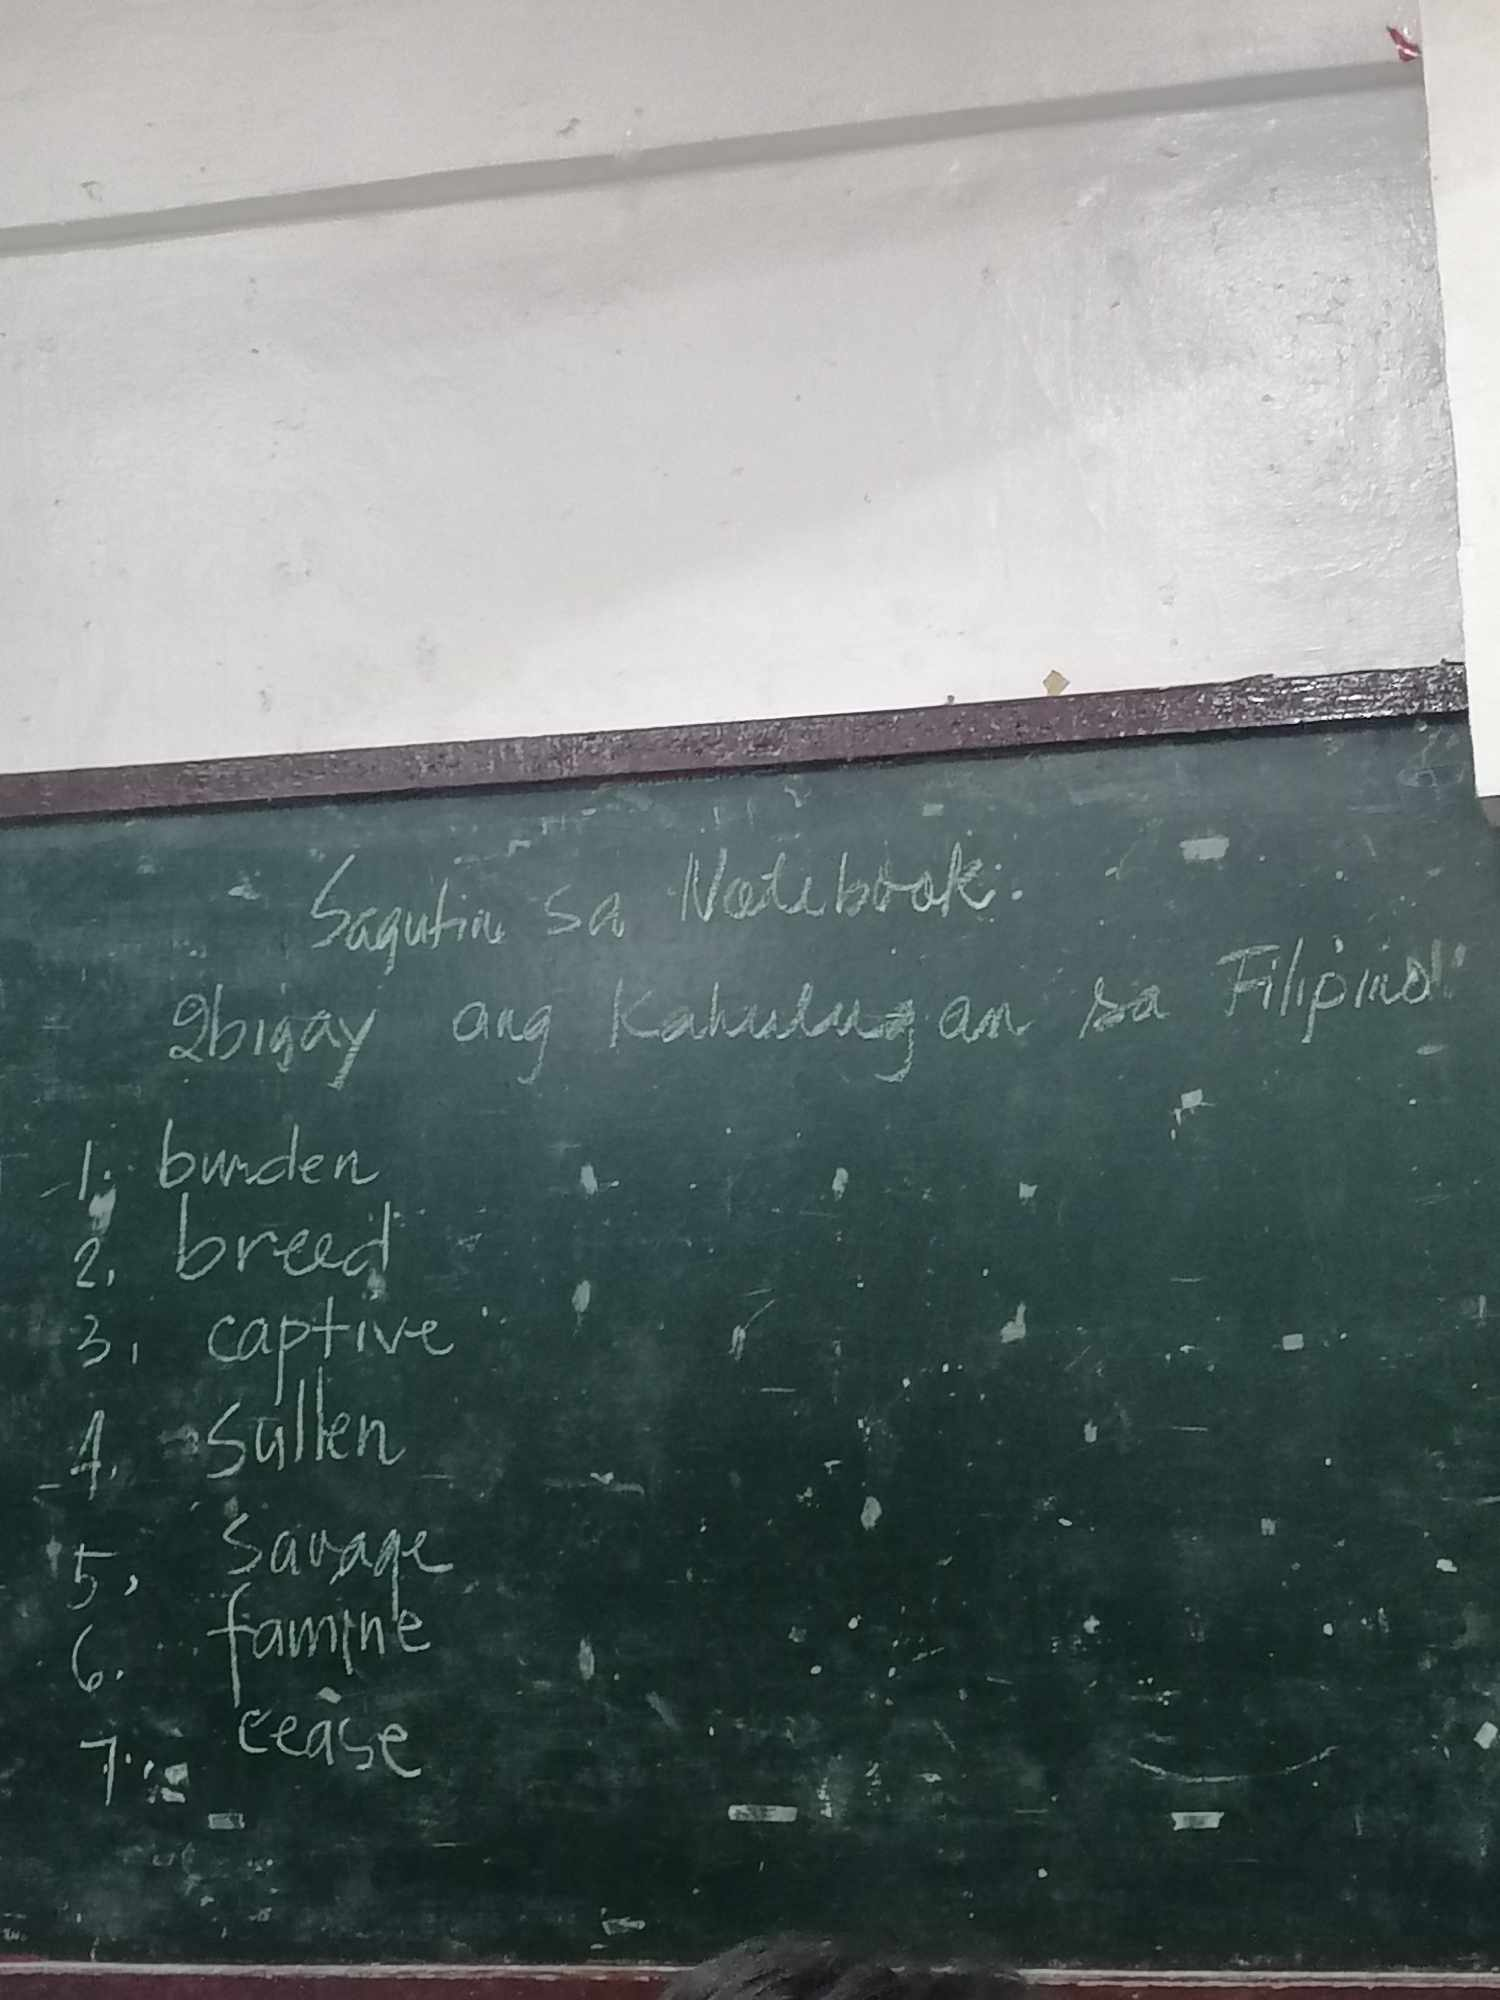 Sagutin sa Notebook.
Ibigay ang Kahulugan sa Filipino
1. burden
2. breed
3. captive
4. Sullen
5. Savage
6. famine
7. cease